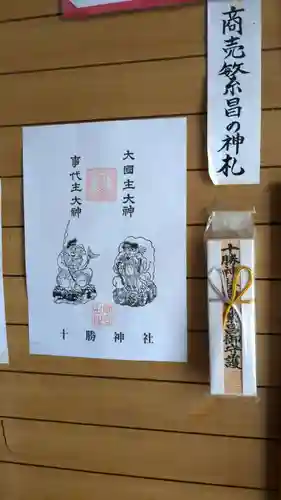 商売繁昌の神札
大國主大神
事代主大神
十勝神社
十勝神
御守護